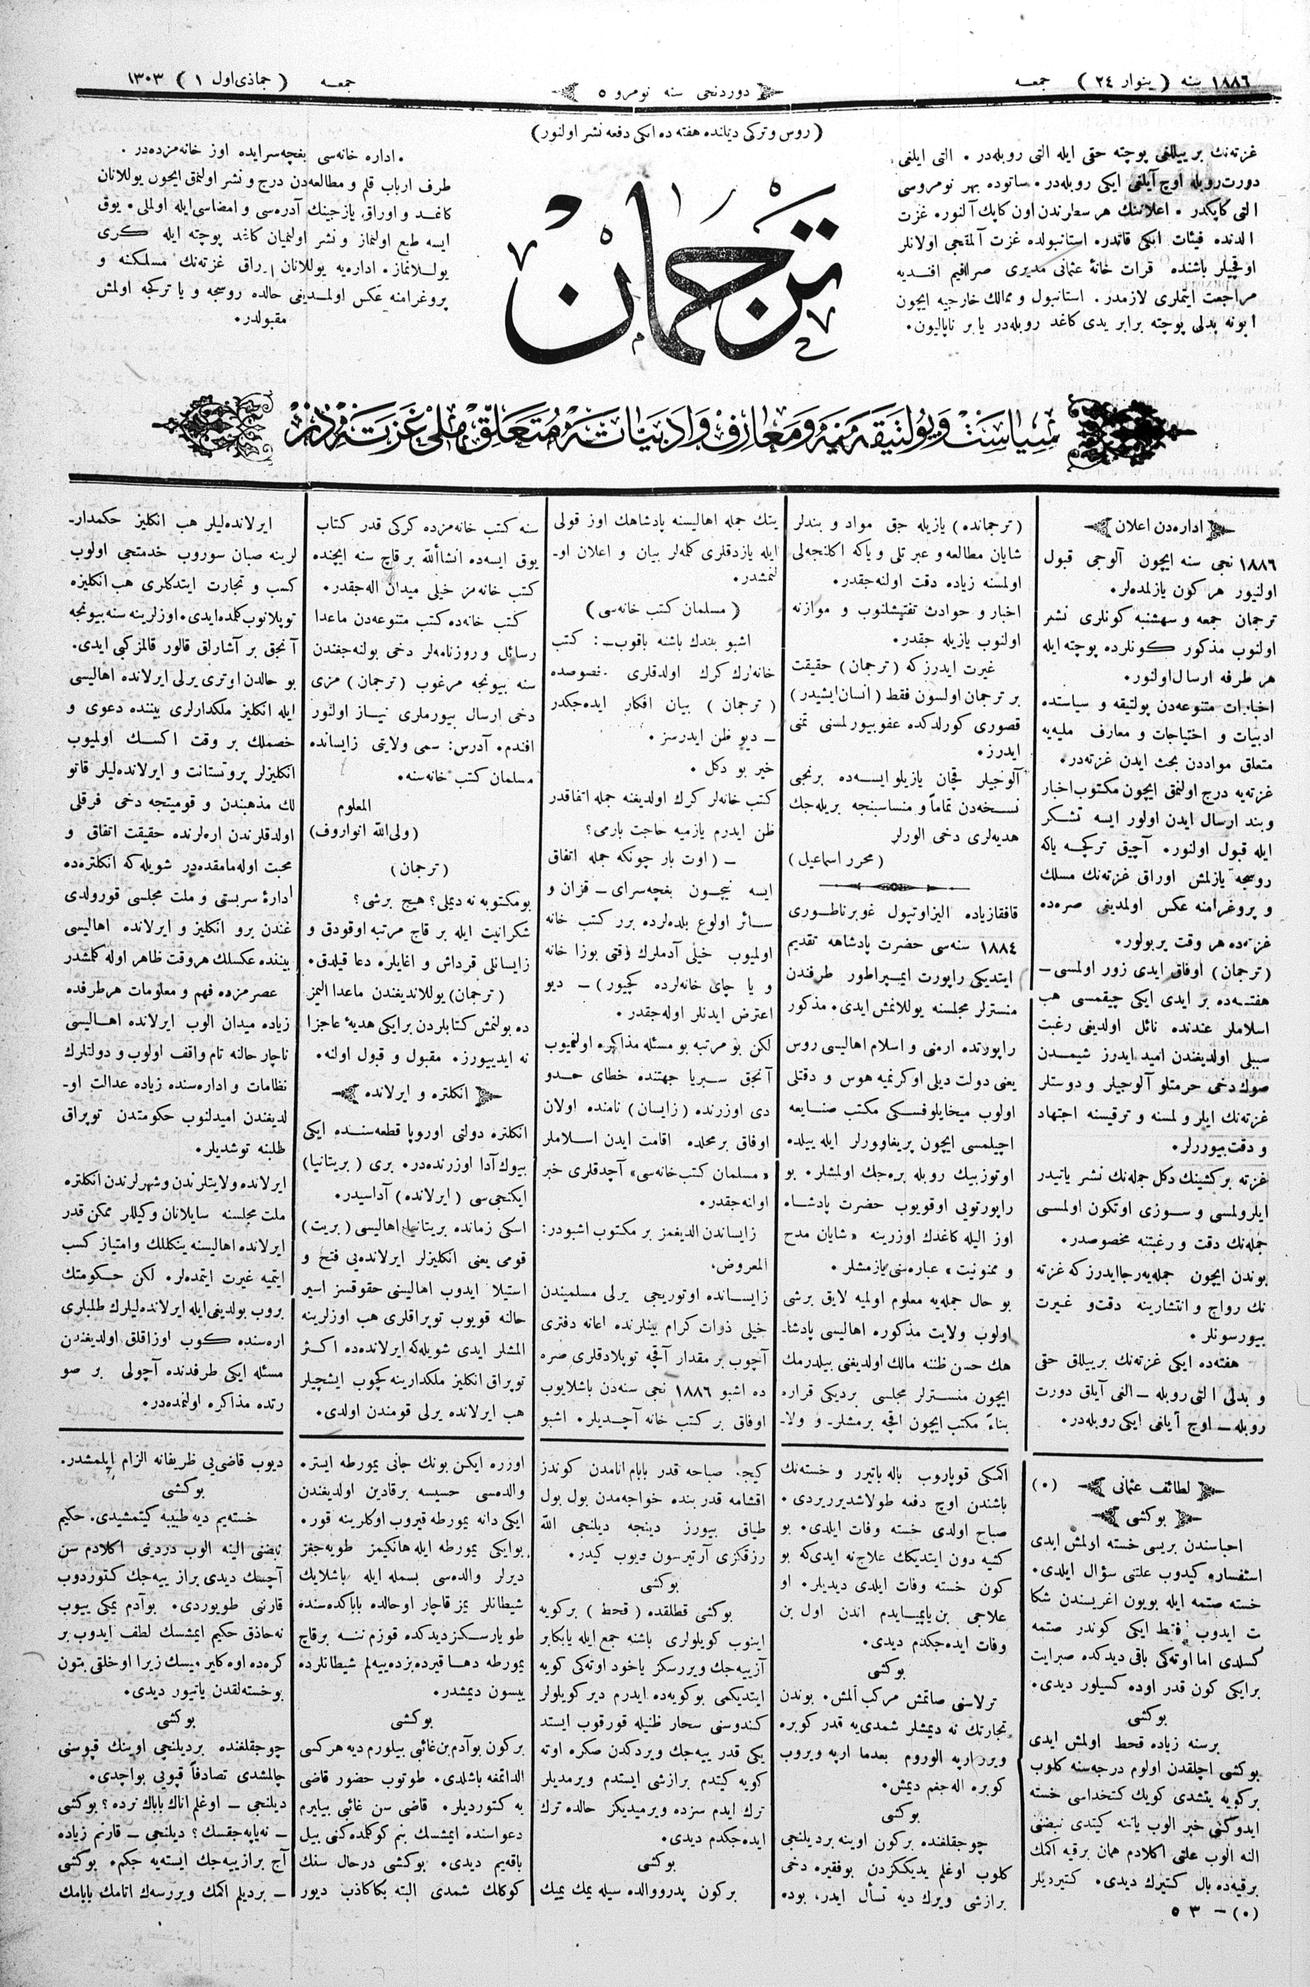 ١٨٨٦ سنه ( ينوار ٢٤ ) جمعه
دوردنجى سنه نومرو ٥
جمعه ( جماذى اول ١ ) ١٣٠٣
(روس و تركى ديلنده هفته ده ايكى دفعه نشر اولنور)
غزته‌نك بر ييللغى پوچته حقى ايله التى روبله‌در . التى ايلغى
دورت روبله اوچ آيلغى ايكى روبله‌در . ساتوده بهر نومروسى
التى كاپكدر . اعلاننك هر سطرندن اون كاپك آلنور . غزت
الدنده فيئات ايكى قاتدر . استانبولده غزت آلمقجى اولانلر
اوقجيلر باشنده قرات خانۀ عثمانى مديرى صرافيم افنديه
مراجعت ايتملرى لازمدر . استانبول و ممالك خارجيه ايچون
ابونه بدلى پوچته برابر يدى كاغد روبله‌در يا بر ناپاليون .
ترجمان
. اداره خانه‌سى بغچه‌سرايده اوز خانه‌مزده‌در .
طرف ارباب قلم و مطالعه‌دن درج و نشر اولنمق ايچون يوللانان
كاغد و اوراق يازجينك آدره‌سى و امضاسى ايله اولملى . يوق
ايسه طبع اولنماز و نشر اولنميان كاغد پوچته ايله كرى
يوللانماز . اداره‌يه يوللانان اوراق غزته‌نك مسلكنه و
پروغرامنه عكس اولمديغى حالده روسجه و يا تركيجه اولمش
مقبولدر .
سياست و پولتيقه و معارف و ادبيات‌ه متعلق ملى غزته‌در
اداره‌دن اعلان
١٨٨٦ نجى سنه ايچون آلوجى قبول
اولنيور هر كون يازلمده‌لر .
ترجمان جمعه و سه‌شنبه كونلرى نشر
اولنوب مذكور كونلرده پوچته ايله
هر طرفه ارسال اولنور .
اخبارات متنوعه‌دن پولتيقه و سياستده
ادبيات و احتياجات و معارف مليه‌يه
متعلق موادندن بحث ايدن غزته‌در .
غزته‌يه درج اولنمق ايچون مكتوب اخبار
و بند ارسال ايدن اولور ايسه تشكر
ايله قبول اولنور . آچيق تركيجه ياكه
روسجه يازلمش اوراق غزته‌نك مسلك
و پروغرامنه عكس اولمديغى صره‌ده
غزته‌ده هر وقت يربولور .
(ترجمان) اوفاق ايدى زور اولمسى ـ
هفته‌ده بر ايدى ايكى چيقمسى هب
اسلاملر عندنده نائل اولديغى رغبت
سببلى اولديغندن اميد ايدرز شيمدن
صوك دخى حرمتلو آلوجيلر و دوستلر
غزته‌نك ايلرولمسنه و ترقيسنه اجتهاد
و دقت بيوررلر .
غزته بر كشينك دكل جمله‌نك نشر ياتيدر
ايلرولمسى و سوزى اوتكون اولمسى
جمله‌نك دقت و رغبتنه مخصوصدر .
بوندن ايچون جمله‌يه رجا ايدرز كه غزته
نك رواج و انتشارينه دقت و غيرت
بيورسونلر .
هفته‌ده ايكى غزته‌نك بر ييللق حقى
و بدلى التى روبله ـ التى آيلق دورت
روبله ـ اوچ آيلغى ايكى روبله‌در .
(ترجمانده) يازيله جق مواد و بندلر
شايان مطالعه و عبرتلى و ياكه اكلنجه‌لى
اولمسنه زياده دقت اولنه جقدر .
اخبار و حوادث تفتيشلنوب و موازنه
اولنوب يازيله جقدر .
غيرت ايدرز كه (ترجمان) حقيقت
بر ترجمان اولسون فقط (انسان ايشيدر)
قصورى كورلدكده عفو بيورلمسنى تمنى
ايدرز .
آلوجيلر قچان يازيلو ايسه‌ده برنجى
نسخه‌دن تماماً و مناسبنجه بريله‌جك
هديه‌لرى دخى الورلر
(محرر اسماعيل)
قافقازياده اليزاوتپول غوبرناطورى
١٨٨٤ سنه‌سى حضرت پادشاهه تقديم
ايتديكى راپورت ايمپراطور طرفندن
منسترلر مجلسنه يوللانمش ايدى . مذكور
راپورتده ارمنى و اسلام اهاليسى روس
يعنى دولت ديلى اوكرنميه هوس و دقتلى
اولوب ميخايلوفسكى مكتب صنايعه
اچيلمسى ايچون پريغاوورلر ايله ييلده
اوتوز بيك روبله بره‌جك اولمشلر . بو
راپورتى اوقويوب حضرت پادشاه
اوز اليله كاغدك اوزرينه « شايان مدح
و ممنونيت » عباره‌سى يازمشلر .
بو حال جمله‌يه معلوم اولميه لايق برشى
اولوب ولايت مذكوره اهاليسى پادشا-
هك حسن ظننه مالك اولديغنى بيلدرمك
ايچون منسترلر مجلسى برديكى قراره
بناءً مكتب ايچون اقچه برمشلر ـ و ولا-
يتك جمله اهاليسنه پادشاهك اوز قولى
ايله يازدقلرى كلمه‌لر بيان و اعلان او-
لنمشدر .
(مسلمان كتب خانه‌سى)
اشبو بندك باشنه باقوب ـ : كتب
خانه‌لرك كرك اولدقلرى خصوصده
(ترجمان) بيان افكار ايده‌جكدر
ـ ديو ظن ايدرسز .
خير بو دكل .
كتب خانه‌لر كرك اولديغنه جمله اتفاقدر
ظن ايدرم يازميه حاجت بارمى؟
ـ (اوت بار چونكه جمله اتفاق
ايسه نيچون بغچه‌سراى ـ قزان و
سائر اولوغ بلده‌لرده برر كتب خانه
اولميوب خيلى آدملرك وقتى بوزا خانه
و يا چاى خانه‌لرده كچيور) ـ ديو
اعترض ايدنلر اوله‌جقدر .
لكن بو مرتبه بو مسئله مذاكره اولنميوب
آنجق سبريا جهتنده خطاى حدو
دى اوزرنده (زايسان) نامنده اولان
اوفاق بر محلده اقامت ايدن اسلاملر
« مسلمان كتب خانه‌سى » آچدقلرى خبر
اوانه‌جقدر .
زايساندن الديغمز بر مكتوب اشبودر:
المعروض .
زايسانده اوتوريجى يرلى مسلميندن
خيلى ذوات كرام بينلرنده اعانه دفترى
آچوب بر مقدار آقچه توپلادقلرى صره
ده اشبو ١٨٨٦ نجى سنه‌دن باشلايوب
اوفاق بر كتب خانه آچديلر . اشبو
سنه كتب خانه‌مزده كركى قدر كتاب
يوق ايسه‌ده انشاألله بر قاچ سنه ايچنده
كتب خانه‌مز خيلى ميدان اله‌جقدر .
كتب خانه‌ده كتب متنوعه‌دن ماعدا
رسائل و روزنامه‌لر دخى بولنه‌جغندن
سنه بيونجه مرغوب (ترجمان) مزى
دخى ارسال بيورملرى نياز اولنور
افندم . آدرس: سمى ولايتى زايسانده
مسلمان كتب خانه‌سنه .
المعلوم
(ولى‌الله انواروف)
(ترجمان)
بو مكتوبه نه ديملى؟ هيچ برشى؟
شكرانيت ايله بر قاچ مرتبه اوقودق و
زايسانلى قرداش و اغايلره دعا قيلدق .
(ترجمان) يوللانديغندن ماعدا اليمز
ده بولنمش كتابلردن برايكى هديۀ عاجزا
نه ايديیورز . مقبول و قبول اولنه .
انكلتره و ايرلانده
انكلتره دولتى اوروپا قطعه‌سنده ايكى
بيوك آدا اوزرنده‌در . برى (بريتانيا)
ايكنجى‌سى (ايرلانده) آداسيدر .
اسكى زمانده بريتانيا اهاليسى (بريت)
قومى يعنى انكليزلر ايرلانده‌يى فتح و
استيلا ايدوب اهاليسنى حقوقسز اسير
حالنه قويوب توپراقلرى هب اوزلرينه
المشلر ايدى شويله‌كه ايرلانده‌ده اكثر
توپراق انكليز ملكدارينه كچوب ايشچيلر
هب ايرلانده يرلى قومندن اولدى .
ايرلانده‌ليلر هب انكليز حكمدار-
لرينه صبان سوروب خدمتجى اولوب
كسب و تجارت ايتدكلرى هب انكليزه
توپلانوب كلمده‌ايدى . اوزلرينه سنه بيونجه
آنجق بر آشارلق قالور قالمزكبى ايدى .
بو حالدن اوترى يرلى ايرلانده اهاليسى
ايله انكليز ملكدارلرى بيننده دعوى و
خصملك بر وقت اكسك اولميوب
انكليزلر پروتستانت و ايرلانده‌ليلر قاتو
لك مذهبندن و قوميتجه دخى فرقلى
اولدقلرندن اره‌لرنده حقيقت اتفاق و
محبت اوله‌مامقده‌در شويله‌كه انكلتره‌ده
ادارۀ سربستى و ملت مجلسى قورولدى
غندن برو انكليز و ايرلانده اهاليسى
بيننده عكسلك هر وقت ظاهر اوله كلمشدر
عصرمزده فهم و معلومات هر طرفده
زياده ميدان الوب ايرلانده اهاليسى
ناچار حالنه تام واقف اولوب و دولتلرك
نظامات و اداره‌سنده زياده عدالت او-
لديغندن اميدلنوب حكومتدن توپراق
طلبنه توشديلر .
ايرلانده ولايتلرندن و شهرلرندن انكلتره
ملت مجلسنه سايلانان وكيللر ممكن قدر
ايرلانده اهاليسنه ينكللك و امتياز كسب
ايتميه غيرت ايتمده‌لر . لكن حكومتك
بروب بولديغى ايله ايرلانده‌ليلرك طلبلرى
اره‌سنده كوب اوزاقلق اولديغندن
مسئله ايكى طرفدنده آچولى بر صو
رتده مذاكره اولنمده‌در .
لطائف عثمانى (٠)
بوكشى
احباسندن بريسى خسته اولمش ايدى
استفساره كيدوب علتنى سؤال ايلدى .
خسته صتمه ايله بويون اغريسندن شكا
ت ايدوب فقط ايكى كوندر صتمه
كسلدى اما اوته‌كى باقى ديدكده صبرايت
برايكى كون قدر اوده كسيلور ديدى .
بوكشى
برسنه زياده قحط اولمش ايدى
بوكشى اچلقدن اولوم درجه‌سنه كلوب
بركويه يتشدى كويك كتخداسى خسته
ايدوكنى خبر الوب ياننه كيتدى نبضنى
النه الوب علتى اكلادم همان برقيه اكمك
برقيه‌ده بال كتيرك ديدى . كتيرديلر
(٠) ـ ٣ ٥
اكمكى قوپاروب باله باتيرر و خسته‌نك
باشندن اوچ دفعه طولاشدير ريدى .
صباح اولدى خسته وفات ايلدى . بو
كشيه دون ايتديكك علاج نه ايدى‌كه بو
كون خسته وفات ايلدى ديديلر . او
علاجى بن ياپميايدم اندن اول بن
وفات ايده‌جكدم ديدى .
بوكشى
ترلاسنى صاتمش مركب المش . بوندن
تجارتك نه ديمشلر شمدى‌يه قدر كوبره
ويرر ارپه الوروم بعدما ارپه ويروب
كوبره اله‌جغم ديمش .
بوكشى
چوجقلغنده بركون اوينه برديلنجى
كلوب اوغلم يديككزدن بوفقيره دخى
برازشى ويرك ديه تسأل ايدر، بوده
كيجه صباحه قدر بابام انامدن كوندز
اقشامه قدر بنده خواجه‌مدن بول بول
طياق ييورز دينجه ديلنجى الله
رزقكزى آرتيرسون ديوب كيدر .
بوكشى
بوكشى قطلقده (قحط) بركويه
اينوب كويلولرى باشنه جمع ايله يابكابر
آزييه‌جك ويررسكز ياخود اوته‌كى كويه
ايتديكمى بوكويه‌ده ايدرم دير كويلولر
كندوسنى سحار ظنيله قورقوب ايستد
يكى قدر ييه‌جك ويردكدن صكره اوته
كويه كيتدم برازشى ايستدم ويرمديلر
ترك ايدم سزده ويرميديكز حالده ترك
ايده‌جكدم ديدى .
بوكشى
بركون پدرووالده سيله يمك يمك
اوزره ايكن بونك جانى يمورطه ايستر .
والده‌سى حسيسه برقادين اولديغندن
ايكى دانه يمورطه قيروب اوكلرينه قور .
بوايكى يمورطه ايله هانكيمز طويه‌جغز
ديرلر والده‌سى بسمله ايله باشلايك
شيطانلر يمز قاچار اوحالده باباكده‌سنده
طويارسكز ديدكده قوزم ننه برقاچ
يمورطه دها قيرده بزده‌ييه‌لم شيطانلرده
ييسون ديمشدر .
بوكشى
بركون بوآدم بن غائبى بيلورم ديه هركسى
الداتمغه باشلدى . طوتوب حضور قاضى
يه كتورديلر . قاضى سن غائبى بيلیرم
دعواسنده ايمشسك بنم كوكلمده‌كنى بيل
باقه‌يم ديدى . بوكشى درحال سنك
كوكلك شمدى البته بكاكاذب ديور
ديوب قاضى‌يى ظريفانه الزام ايلمشدر .
بوكشى
خسته‌يم ديه طبيبه كيتمشيدى . حكيم
نبضنى الينه الوب دردينى اكلادم سن
آچسك ديدى براز ييه‌جك كتوردوب
قارننى طويوردى . بوآدم يمكى ييوب
نه حاذق حكيم ايمشسك لطف ايدوب بر
كره‌ده اوه كلير ميسك زيرا اوخلقى بتون
بوخسته‌لقدن ياتيور ديدى .
بوكشى
چوجقلغنده برديلنجى اوينك قپوسنى
چالمشدى تصادفاً قپويى بواچدى .
ديلنجى ـ اوغلم اناك باباك نرده؟ بوكشى
ـ نه‌ياپه‌جقسك؟ ديلنجى ـ قارنم زياده
آج برازييه‌جك ايسته‌يه جكم . بوكشى
ـ برديلم اكمك ويررسه‌ك اتامك بابامك